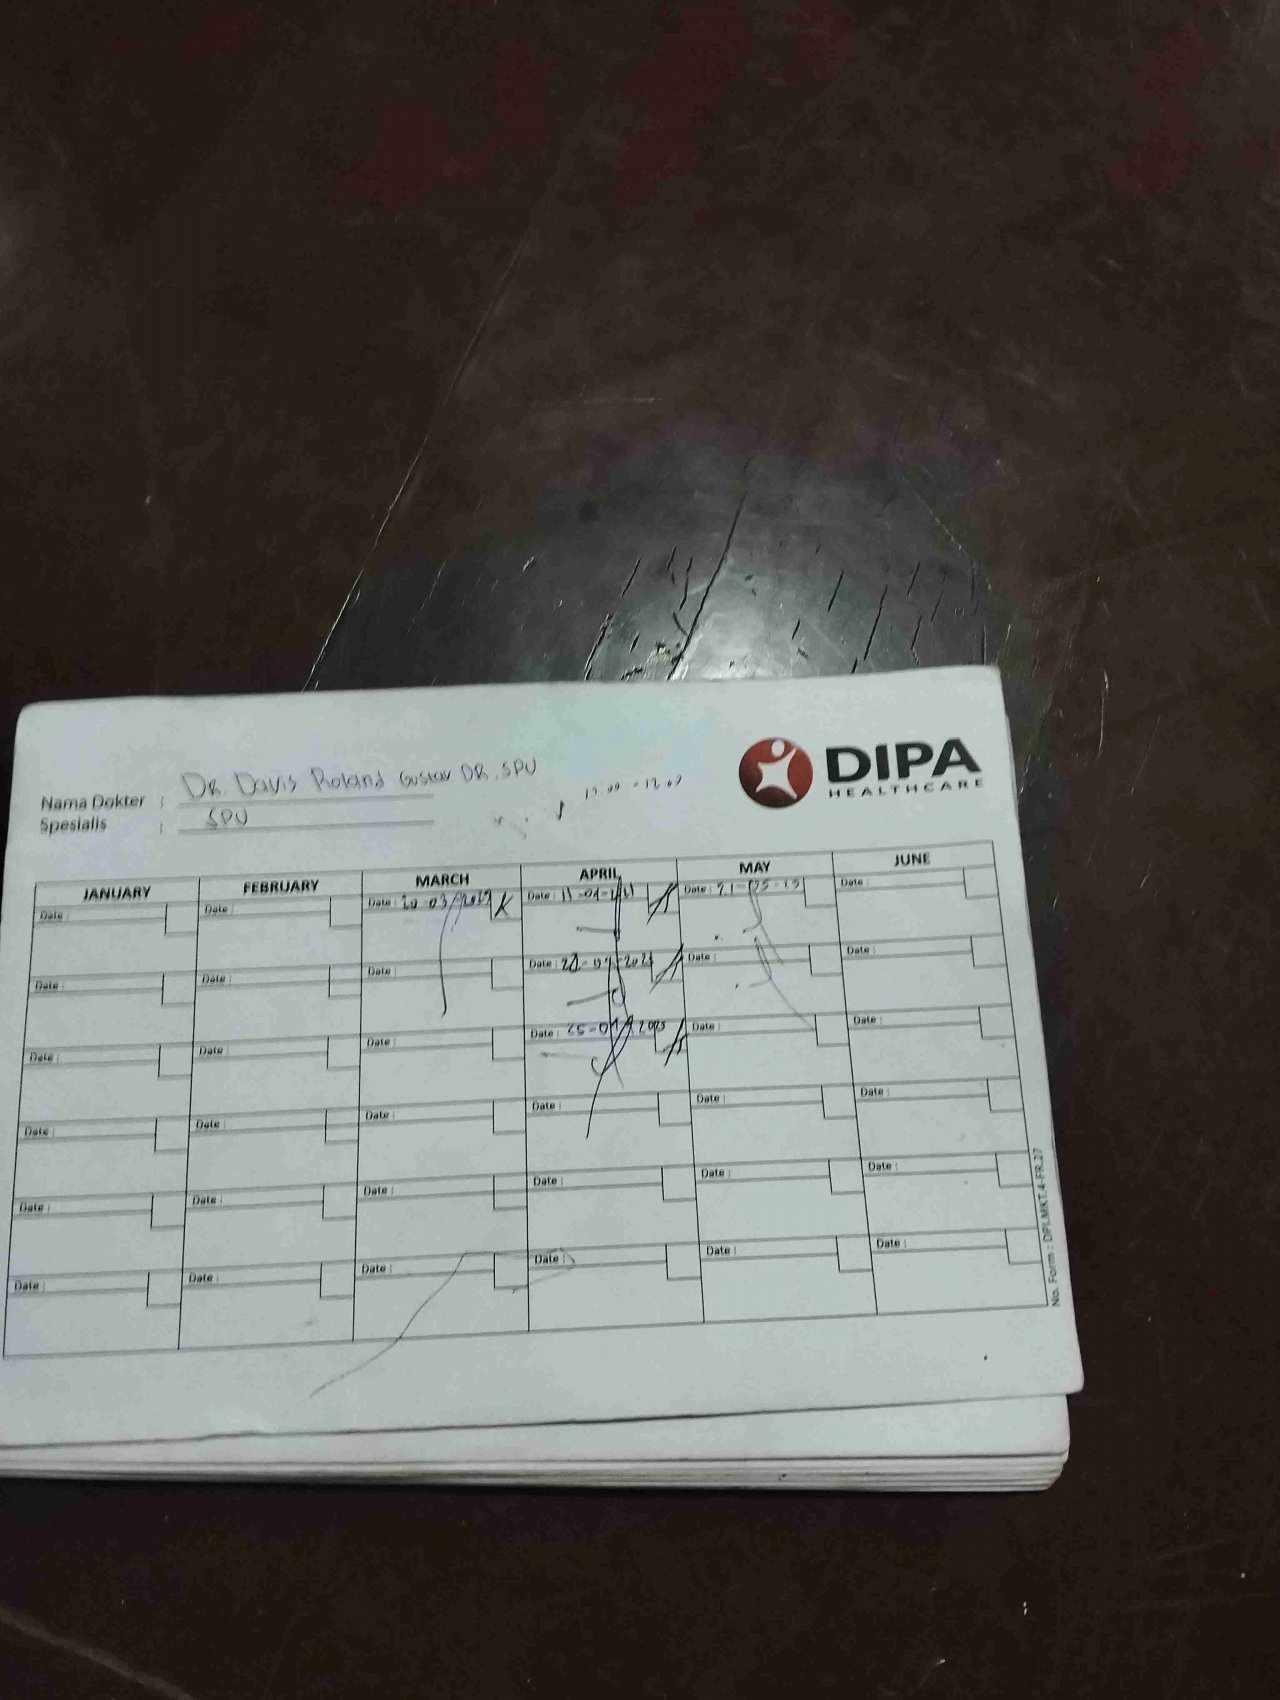 DIPA
HEALTHCARE
Nama Dokter : DR. Davis Roland Gustav DR. SPU
Spesialis : SPU
JANUARY FEBRUARY MARCH APRIL MAY JUNE
Date : Date : Date : 20-03-2025 Date : 11-04- Date : 21-05-25 Date :
Date : Date : Date : Date : 22-04-2025 Date : Date :
Date : Date : Date : Date : 25-04-2025 Date : Date :
Date : Date : Date : Date : Date : Date :
Date : Date : Date : Date : Date : Date :
Date : Date : Date : Date : Date : Date :
No. Form : DPLMKT.4-FR.27